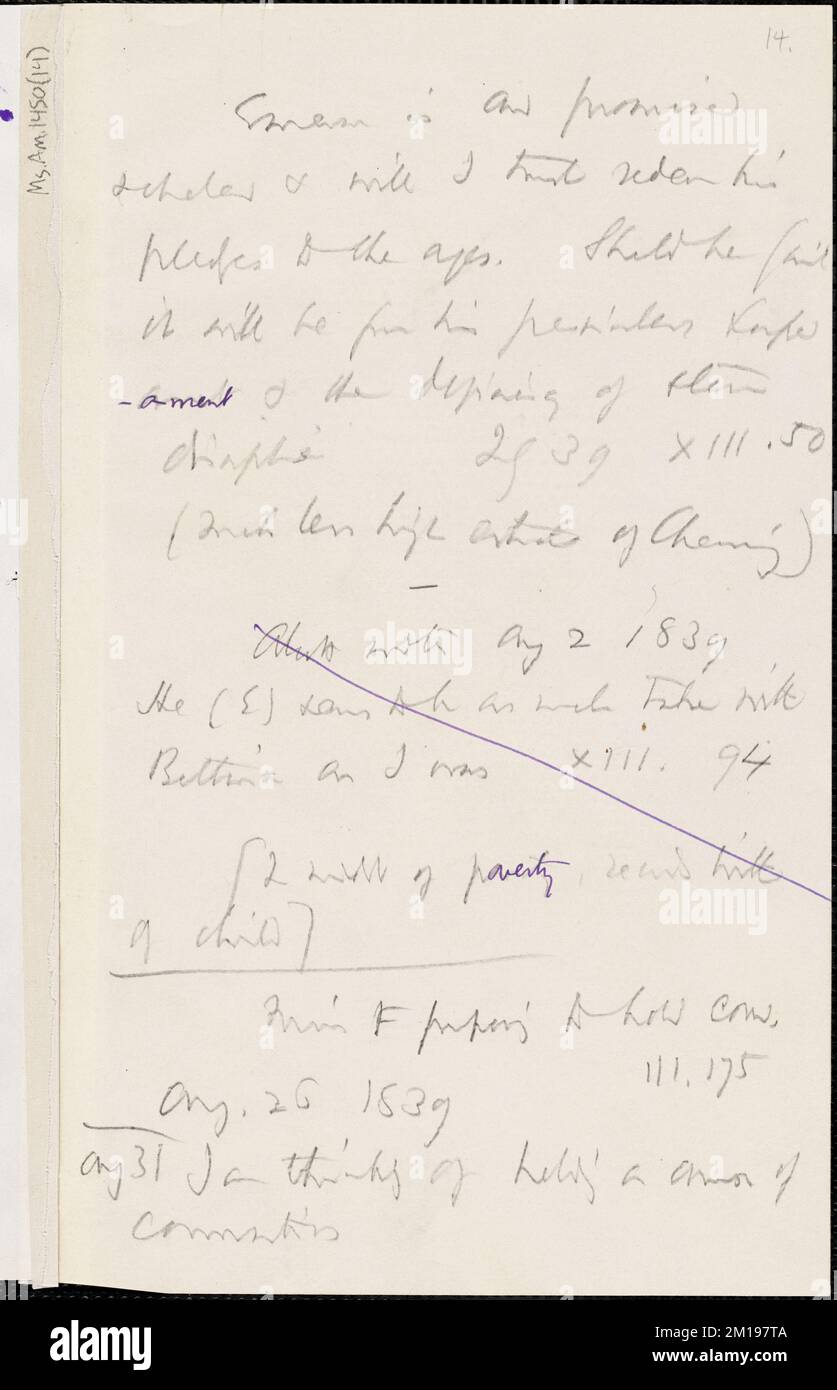 14.
Ms.Am.1450(14)
Emerson is our promised
scholar & will I trust redeem his
pledges to the ages. Should he fail
it will be from his peculiar temper
-ament & the of stern
discipline 39 XIII.50
( less high estimate of Channing)
—
Alcott Aug 2 1839
He (E) seems to be as much taken with
Bettina as I was XIII. 94
[In midst of poverty, records birth
of child]
Miss F proposing to hold conv.
III.175
Aug. 26 1839
Aug 31 I am thinking of holding a course of
Conversations
alamy
Image ID: 2M197TA
www.alamy.com